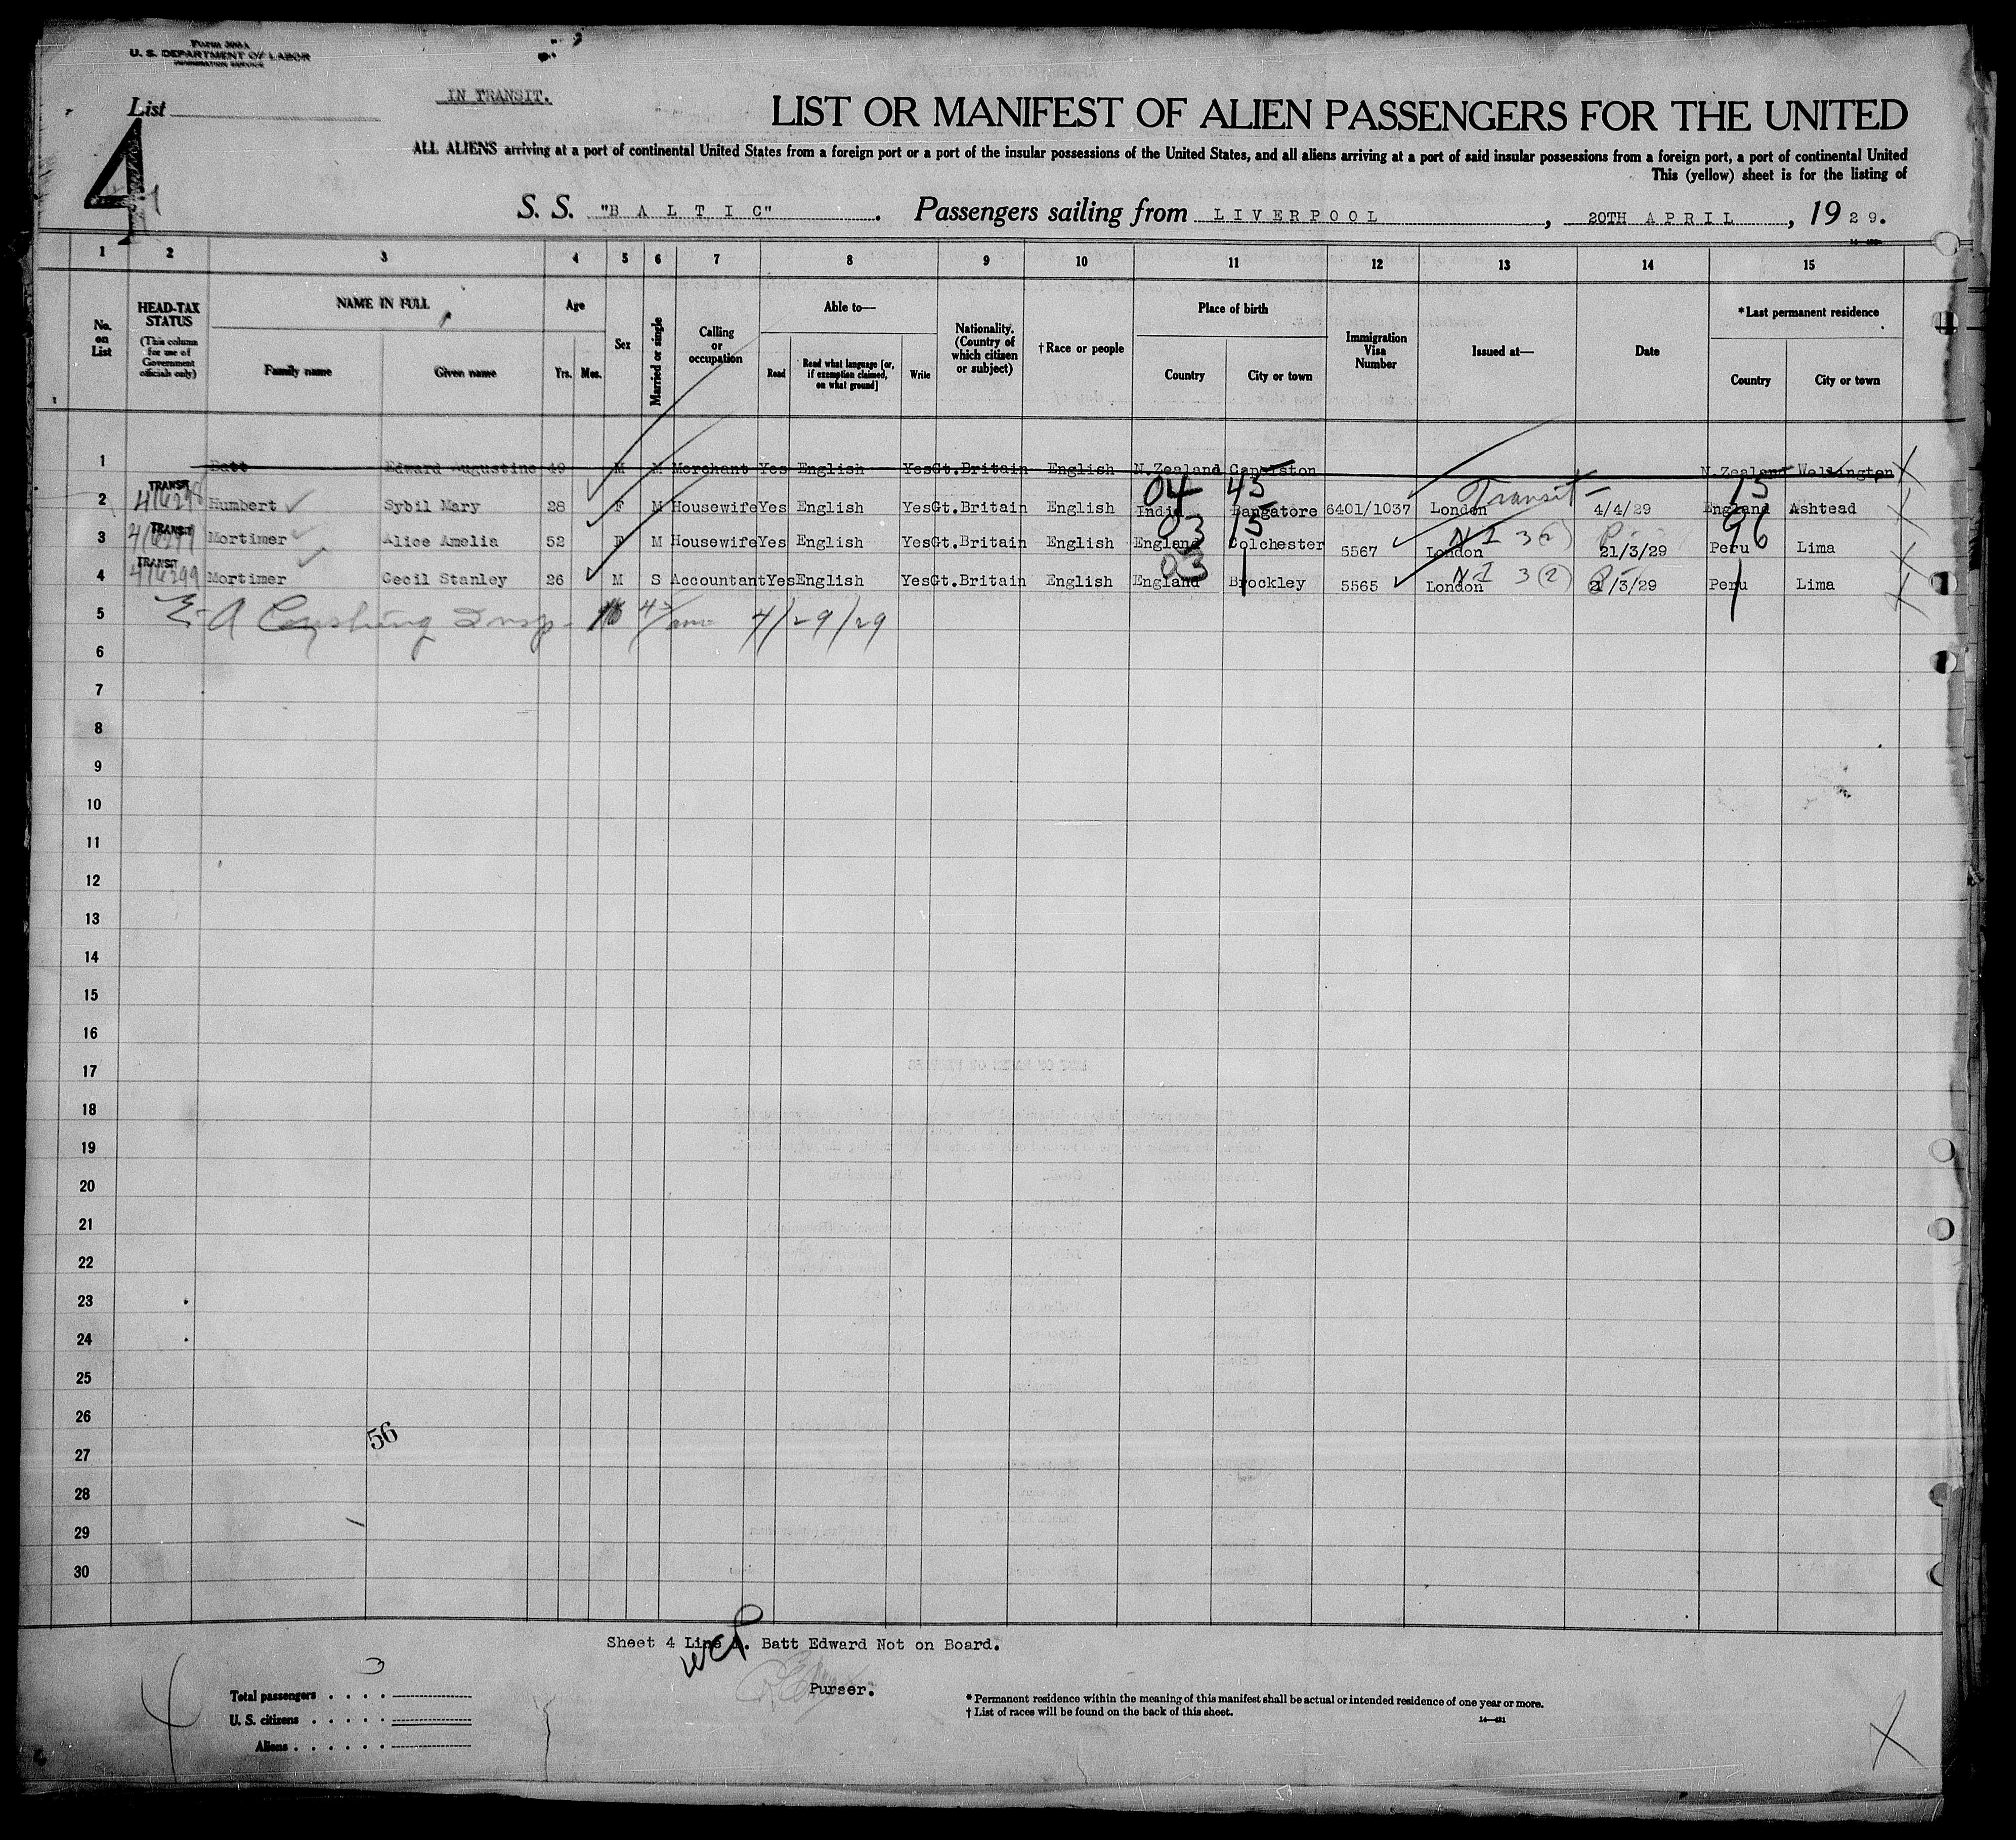 Form 500A
U. S. DEPARTMENT OF LABOR
IMMIGRATION SERVICE
List
4
IN TRANSIT.
LIST OR MANIFEST OF ALIEN PASSENGERS FOR THE UNITED
ALL ALIENS arriving at a port of continental United States from a foreign port or a port of the insular possessions of the United States, and all aliens arriving at a port of said insular possessions from a foreign port, a port of continental United
This (yellow) sheet is for the listing of
S. S. "B A L T I C" . Passengers sailing from LIVERPOOL , 20TH APRIL , 19 29.
1 2 3 4 5 6 7 8 9 10 11 12 13 14 15
No. on List
HEAD-TAX STATUS (This column for use of Government officials only)
NAME IN FULL
Family name Given name
Age
Yrs. Mos.
Sex
Married or single
Calling or occupation
Able to—
Read Read what language [or, if exemption claimed, on what ground] Write
Nationality. (Country of which citizen or subject)
†Race or people
Place of birth
Country City or town
Immigration Visa Number
Issued at—
Date
*Last permanent residence
Country City or town
1 Batt Edward Augustine 49 M M Merchant Yes English Yes Gt.Britain English N.Zealand N.Zealand Wellington
04 43 Transit 15
2 TRANSIT Humbert Sybil Mary 28 F M Housewife Yes English Yes Gt.Britain English India Bangatore 6401/1037 London 4/4/29 England Ashtead
03 15 N I 3(2) 96
3 TRANSIT Mortimer Alice Amelia 52 F M Housewife Yes English Yes Gt.Britain English England Colchester 5567 London 21/3/29 Peru Lima
03 N I 3(2)
4 TRANSIT Mortimer Cecil Stanley 26 M S Accountant Yes English Yes Gt.Britain English England Brockley 5565 London 21/3/29 Peru Lima
5 E A Cushing Insp. 4/29/29
6
7
8
9
10
11
12
13
14
15
16
17
18
19
20
21
22
23
24
25
26
56
27
28
29
30
Sheet 4 Line 1. Batt Edward Not on Board.
Purser.
Total passengers
U. S. citizens
Aliens
* Permanent residence within the meaning of this manifest shall be actual or intended residence of one year or more.
† List of races will be found on the back of this sheet.
14—421